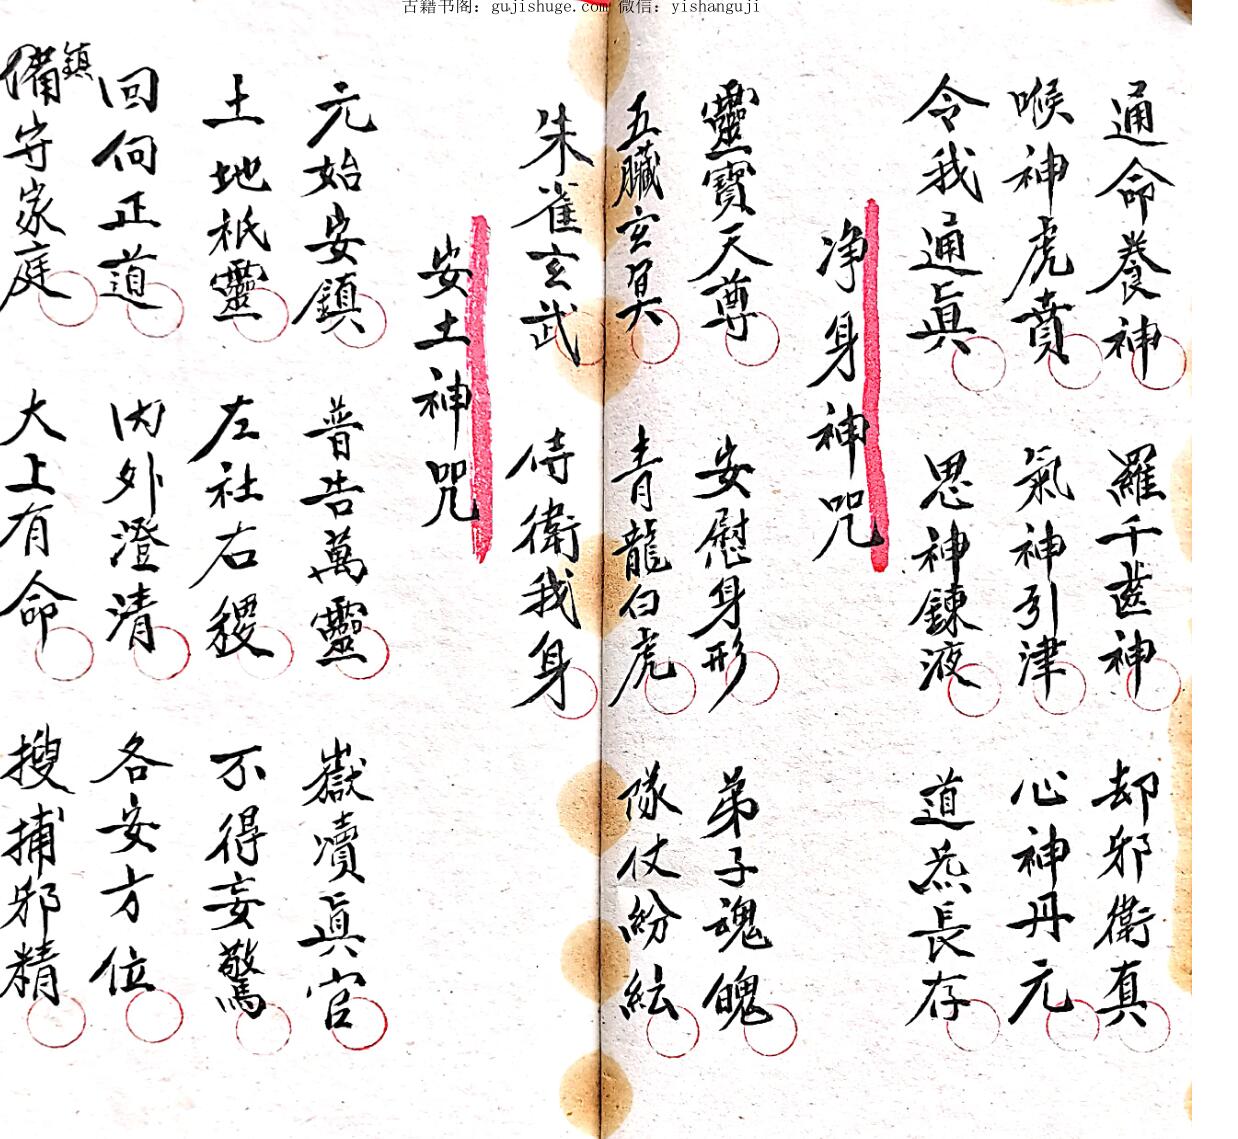 古籍书阁：gujishuge.com 微信：yishanguji
通命養神 羅千齒神 却邪衛真
喉神虎賁 氣神引津 心神丹元
令我通眞 思神鍊液 道炁長存
净身神咒
靈寶天尊 安慰身形 弟子魂魄
五臟玄冥 青龍白虎 隊仗紛紜
朱雀玄武 侍衛我身
安土神咒
元始安鎮 普告萬靈 嶽瀆眞官
土地祇靈 左社右稷 不得妄驚
回向正道 内外澄清 各安方位
鎮
備守家庭 大上有命 搜捕邪精